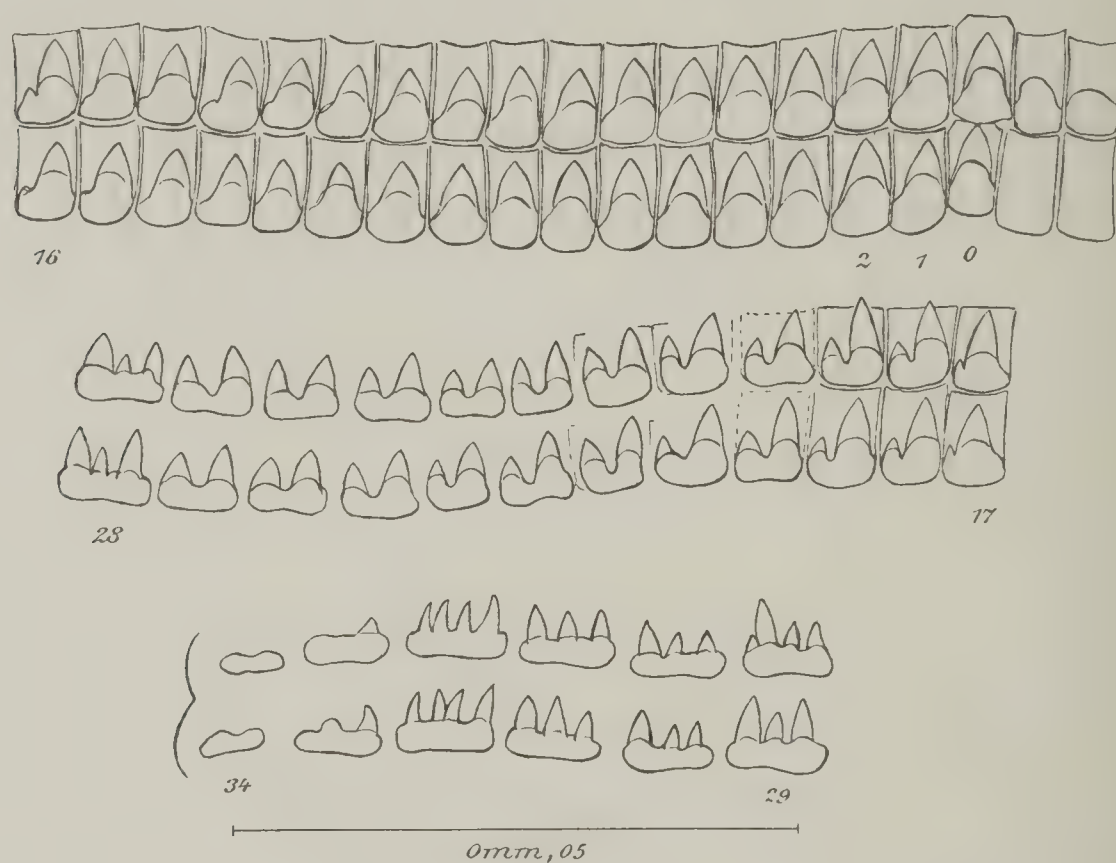 16 2 1 0
28 17
34 29
0mm,05